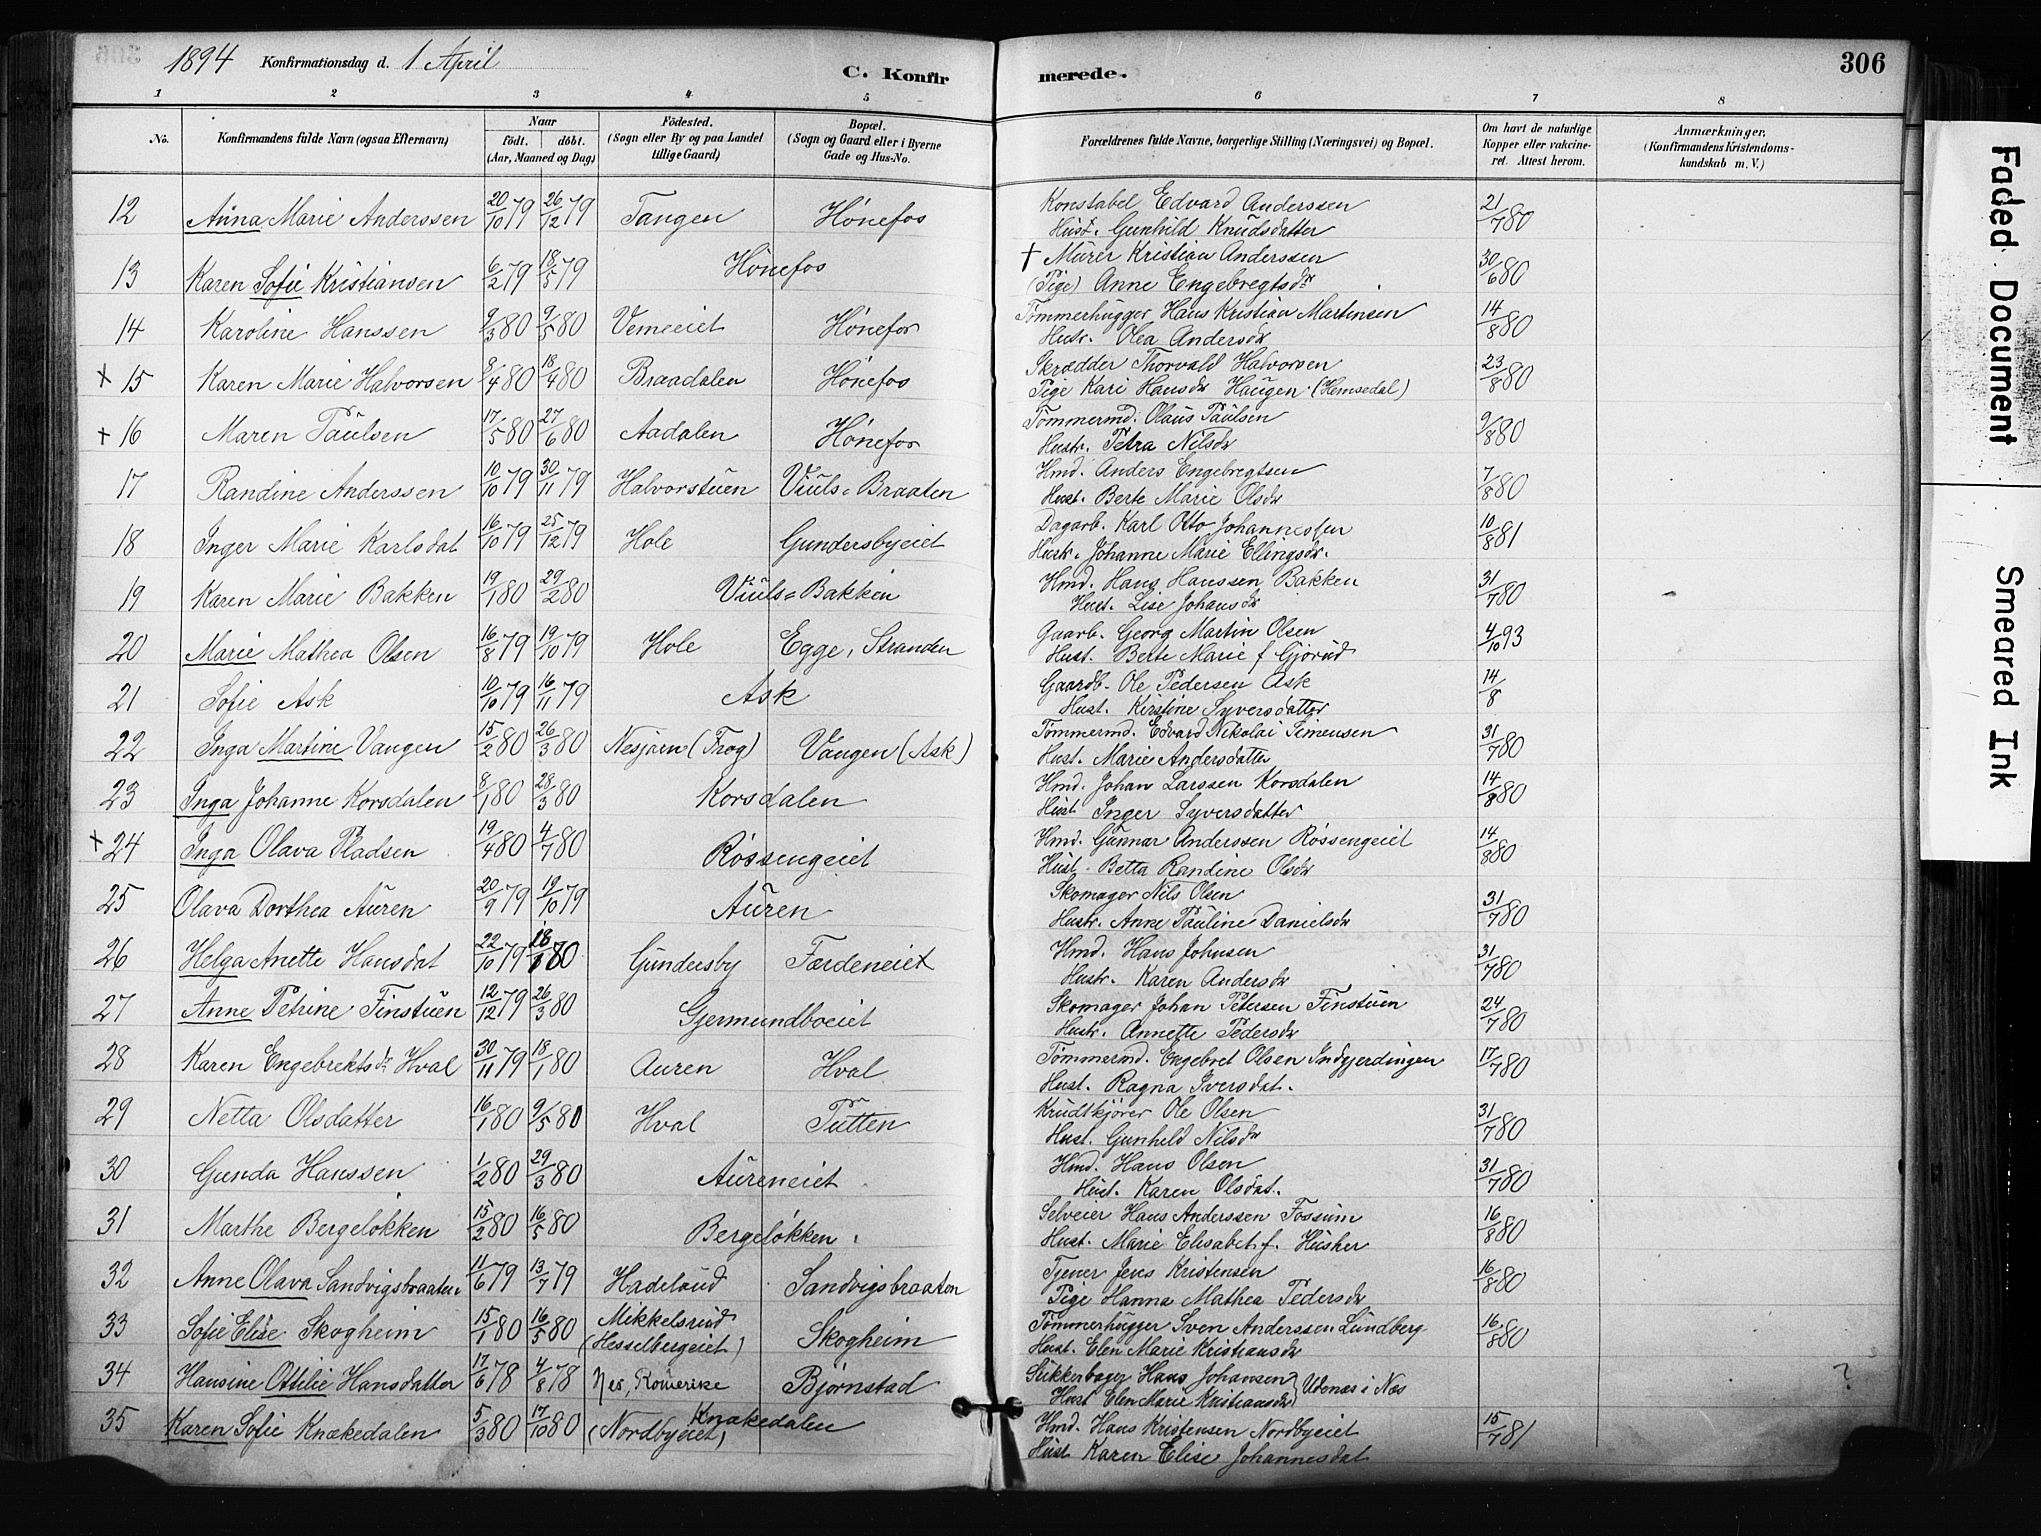 1894 Konfirmationsdag d. 1 April C. Konfirmerede. 306
1 2 3 4 5 6 7 8
No. Konfirmandens fulde Navn (ogsaa Efternavn) Naar født. døbt. (Aar, Maaned og Dag) Fødested. (Sogn eller By og paa Landet tillige Gaard) Bopæl. (Sogn og Gaard eller i Byerne Gade og Hus-No. Forældrenes fulde Navne, borgerlige Stilling (Næringsvei) og Bopæl. Om havt de naturlige Kopper eller vakcineret. Attest herom. Anmærkninger. (Konfirmandens Kristendomskundskab m. V.)
12 Anna Marie Anderssen 20/10 79 26/12 79 Tangen Hønefos Konstabel Edvard Anderssen 21/7 80
Hust. Gunhild Knudsdatter
13 Karen Sofie Kristiansen 6/2 79 18/5 79 Hønefos † Murer Kristian Anderssen 30/6 80
(Pige) Anne Engebregtsdr
14 Karoline Hanssen 9/3 80 9/5 80 Vemeeiet Hønefos Tømmerhugger Hans Kristian Martinsen 14/8 80
Hustr. Olea Andersdr
+ 15 Karen Marie Halvorsen 8/4 80 18/4 80 Braadalen Hønefos Skrædder Thorvald Halvorsen 23/8 80
Pige Kari Hansdr Haugen (Hemsedal)
+ 16 Maren Paulsen 17/5 80 27/6 80 Aadalen Hønefos Tømmermd. Olaus Paulsen 9/8 80
Hustr. Petra Nilsdr
17 Randine Anderssen 10/10 79 30/11 79 Halvorstuen Viuls-Braaten Hmd. Anders Engebregtsen 7/8 80
Hust. Berte Marie Olsdr
18 Inger Marie Karlsdat 16/10 79 25/12 79 Hole Gundersbyeiet Dagarb. Karl Otto Johannessen 10/8 81
Hustr. Johanne Marie Ellingsdr.
19 Karen Marie Bakken 19/1 80 29/2 80 Viuls-Bakken Hmd. Hans Hanssen Bakken 31/7 80
Hust. Lise Johansdr
20 Marie Mathea Olsen 16/8 79 19/10 79 Hole Egge, Stranden Gaarb. Georg Martin Olsen 4/10 93
Hust. Berte Marie f Gjørud
21 Sofie Ask 10/10 79 16/11 79 Ask Gaardb. Ole Pedersen Ask 14/8
Hust. Kirstine Syversdatter
22 Inga Martine Vangen 15/2 80 26/3 80 Nesjøen (Frog) Vangen (Ask) Tømmermd. Edvard Nikolai Simensen 31/7 80
Hust. Marie Andersdatter
23 Inga Johanne Korsdalen 8/1 80 28/3 80 Korsdalen Hmd. Johan Larssen Korsdalen 14/8 80
Hust Inger Syversdatter
+ 24 Inga Olava Pladsen 19/4 80 4/7 80 Røssengeiet Hmd. Gunnar Anderssen Røssengeiet 14/8 80
Hust. Betta Randine Olsdr
25 Olava Dorthea Auren 20/9 79 19/10 79 Auren Skomager Nils Olsen 31/7 80
Hustr. Anne Pauline Danielsdr
26 Helga Anette Hansdat 22/10 79 18/1 80 Gundersby Fardeneiet Hmd. Hans Johnsen 31/7 80
Hustr. Karen Andersdr
27 Anne Petrine Finstuen 12/12 79 26/3 80 Gjermundboeiet Skomager Johan Petersen Finstuen 24/7 80
Hustr. Annette Pedersdr
28 Karen Engebrektsdr Hval 30/11 79 18/1 80 Auren Hval Tømmermd. Engebret Olsen Indgjerdingen 17/7 80
Hust. Ragna Iversdat.
29 Netta Olsdatter 16/1 80 9/5 80 Hval Putten Krudtkjører Ole Olsen 31/7 80
Hust. Gunhild Nilsdr
30 Gunda Hanssen 1/2 80 29/3 80 Aureneiet Hmd. Hans Olsen 31/7 80
Hust. Karen Olsdat.
31 Marthe Bergeløkken 15/2 80 16/5 80 Bergeløkken Selveier Hans Anderssen Fossum 16/8 80
Hust. Marie Elisabet f. Husher
32 Anne Olava Sandvigsbraaten 11/6 79 13/7 79 Hadeland Sandvigsbraaten Tjener Jens Kristensen 16/8 80
Pige Hanna Mathea Pedersdr
33 Sofie Elise Skogheim 15/1 80 16/5 80 Mikkelsrud (Hesselbergeiet) Skogheim Tømmerhugger Sven Anderssen Lundberg 16/8 80
Hust. Elen Marie Kristiansdr
34 Hansine Ottilie Hansdatter 17/6 78 4/8 78 Nes, Romerike Bjørnstad Sukkerbager Hans Johansen } Udenæs i Næs ?
Hust Elen Marie Kristiansdr
35 Karen Sofie Knækedalen 5/3 80 17/10 80 (Nordbyeiet) Knækedalen Hmd. Hans Kristensen Nordbyeiet 15/7 81
Hust Karen Elise Johannesdat
Faded Document
Smeared Ink